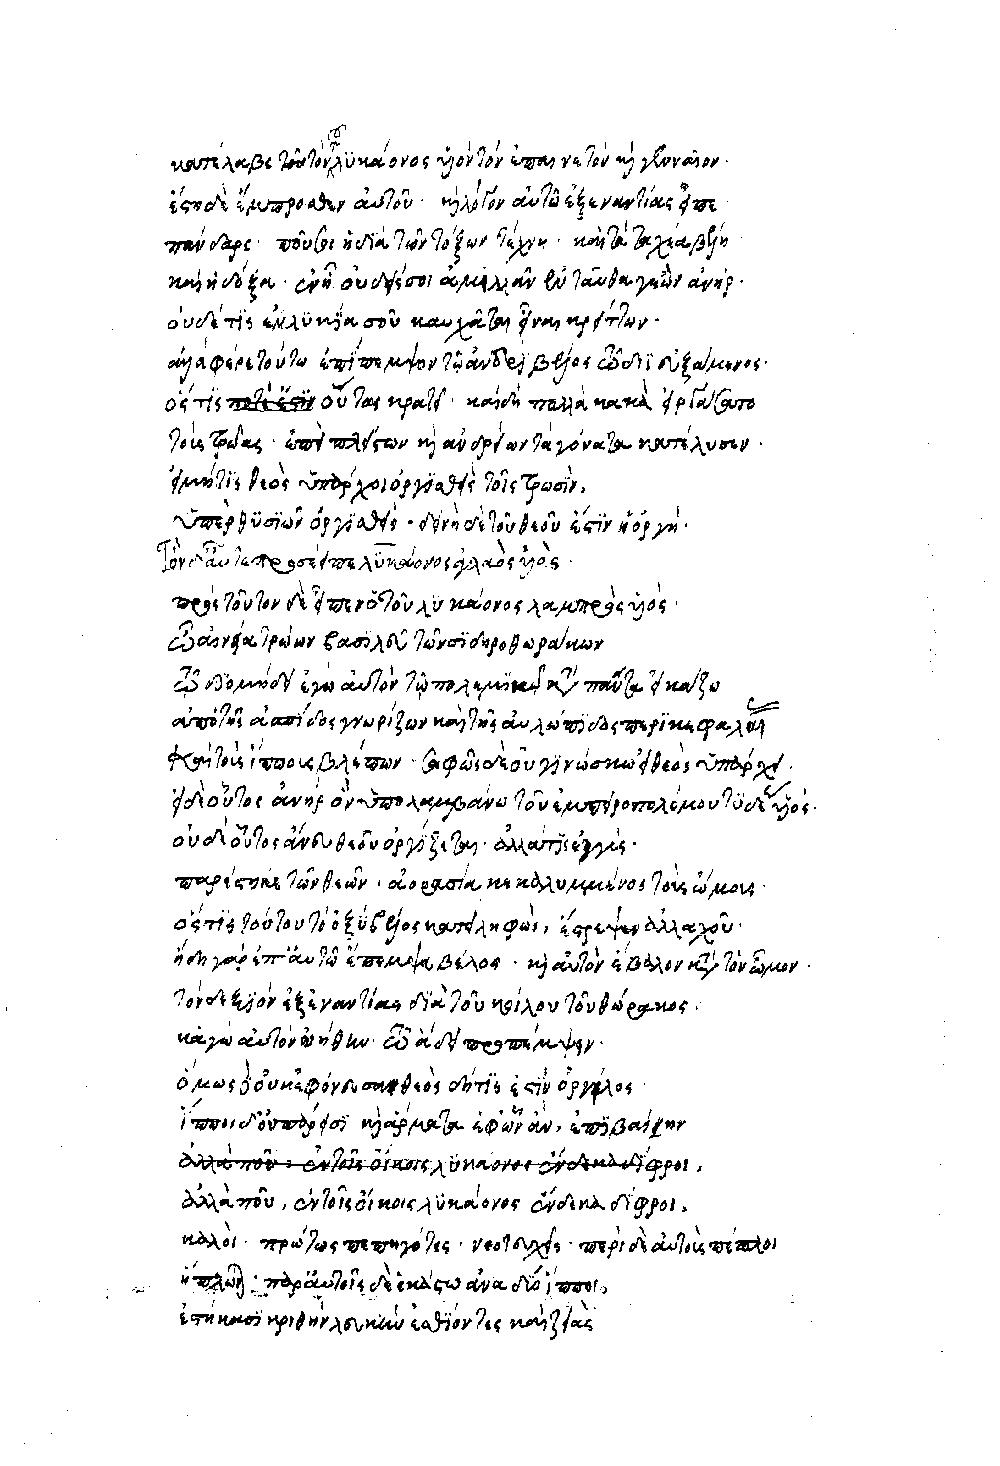 κατέλαβε τοῦτον λϋκάονος ὑὸν τὸν ἐπαινετὸν καὶ γενναῖον·
ἕστηδε ἔμπροσθεν αὐτοῦ· καὶ λόγον αὐτῶ ἐξεναντίας εἶπε
πάνδαρε· ποῦ σοι ἡ διὰ τῶν τόξων τέχνη· καὶ τὰ ταχέα βέλη
καὶ ἡ δόξα· οὐδείς σοι ἁμιλλᾶν ἐνταῦθα γοῦν ἀνήρ·
οὐδέ τις ἐν λϋκία σοῦ καυχᾶται εἶναι κρείττων·
ἀλλὰ φέρε τούτω ἐπίπεμψον τῶ ἀνδρὶ βέλος διῒ εὐξάμενος·
ὅς τις οὗτος κρατεῖ· καὶ δὴ πολλὰ κακὰ εἰργάσατο
τοὺς τρῶας· ἐπεὶ πλείστων καὶ ἀνδρείων τὰ γόνατα κατέλυσεν·
εἰ μή τις θεὸς ὑπάρχοι ὀργισθεὶς τοῖς τρωσὶν,
ὑπὲρ θϋσιῶν ὀργισθεὶς· δεινὴ δὲ τοῦ θεοῦ ἐστὶν ἡ ὀργή·
Τὸν δ' αὖτε προσέειπε λϋκάονος ἀγλαὸς υἱὸς·
πρὸς τοῦτον δὲ εἶπεν ὁ τοῦ λϋκάονος λαμπρὸς υἱός·
ὦ αἰνεία τρώων βασιλεῦ τῶν σιδηροθωράκων
διομήδει ἐγὼ αὐτὸν τῶ πολεμικῶ κατὰ πάντα εἰκάζω
ἀπὸ τῆς ἀσπίδος γνωρίζων καὶ τῆς αὐλώπιδος περικεφαλαίας
καὶ τοὺς ἵππους βλέπων· σαφῶς δὲ οὐ γινώσκω εἰ θεὸς ὑπάρχει·
εἰ δὲ οὗτος ἀνὴρ ὃν ὑπολαμβάνω τοῦ ἐμπειροπολέμου τϋδέως ὑὸς·
οὐδὲ οὗτος ἄνευ θεοῦ ὀργίζεται· ἀλλά τις ἐγγὺς·
παρέστηκε τῶν θεῶν· ἀορασία κεκαλυμμένος τοὺς ὤμους·
ὅς τις τούτου τὸ ὀξὺ βέλος κατέληφὼς, ἔστρεψεν ἀλλαχοῦ·
ἤδη γὰρ ἐπ' αὐτῶ ἔπεμψα βέλος· καὶ αὐτὸν ἔβαλον κατὰ τὸν ὦμον·
τὸν δεξιὸν ἐξεναντίας διὰ τοῦ κοίλου τοῦ θώρακος·
κἀγὼ αὐτὸν ὠήθην ἅδει προπέμψειν·
ὅμως δ' οὐκ ἐφόνευσα θεὸς δή τις ἐστὶν ὀργίλος·
ἵπποι δ' οὐ πάρεισι καὶ ἅρματα ἐφ' ὧν ἂν, ἐπιβαίην
ἀλλὰ ποῦ, ἐν τοῖς οἴκοις λϋκάονος ἕνδεκα δίφροι,
ἀλλὰ ποῦ, ἐν τοῖς οἴκοις λϋκάονος ἕνδεκα δίφροι,
καλοὶ· πρώτως πεπηγότες· νεοτευχεῖς· περὶ δὲ αὐτοὺς πέπλοι
ἥπλωνται· παρ' αὐτοῖς δὲ ἑκάστω ἀνα δύο ἵπποι,
ἑστήκασι κριθὴν λευκὴν ἐσθίοντες καὶ ζειὰς